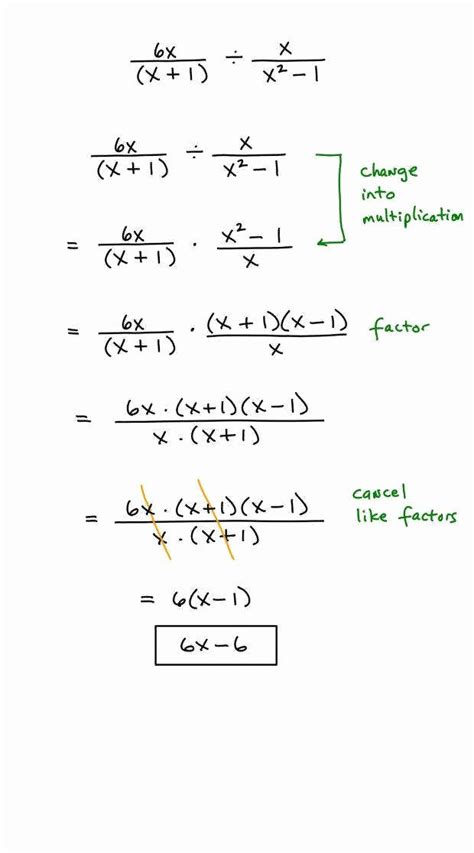 6x/(x+1) ÷ x/(x²-1)
6x/(x+1) ÷ x/(x²-1)
change
into
multiplication
= 6x/(x+1) · (x²-1)/x
= 6x/(x+1) · (x+1)(x-1)/x factor
= 6x·(x+1)(x-1)/x·(x+1)
= 6x·(x+1)(x-1)/x·(x+1) cancel
like factors
= 6(x-1)
6x-6